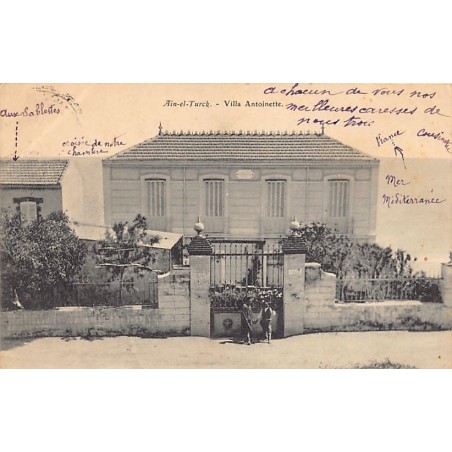 Ain-el-Turck. - Villa Antoinette.
a chacun de vous nos
meilleures caresses de
nous trois
aux Sablettes
croisée de notre
chambre
Mer
Méditerranée